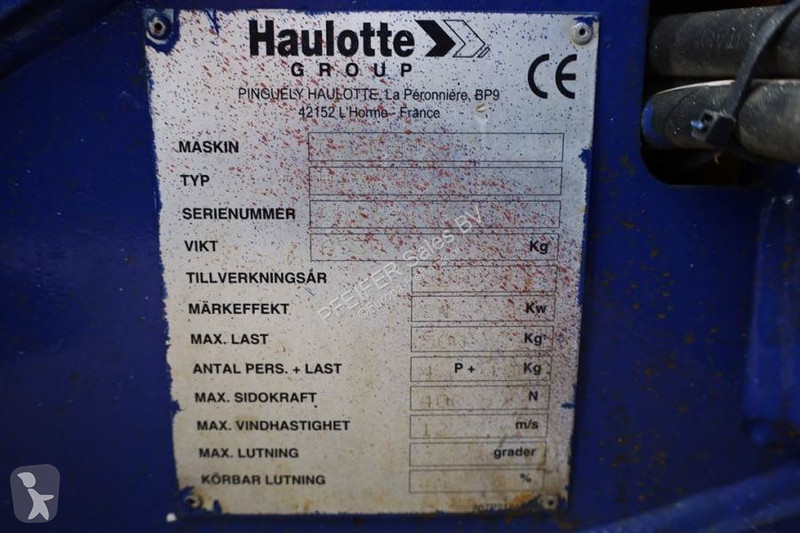 Haulotte
GROUP
PINGUELY HAULOTTE, La Péronnière, BP9
42152 L'Horme - France
CE
MASKIN
TYP
SERIENUMMER
VIKT Kg
TILLVERKNINGSÅR
MÄRKEFFEKT Kw
MAX. LAST Kg
ANTAL PERS. + LAST P + Kg
MAX. SIDOKRAFT N
MAX. VINDHASTIGHET m/s
MAX. LUTNING grader
KÖRBAR LUTNING %
PFEIFER Sales BV